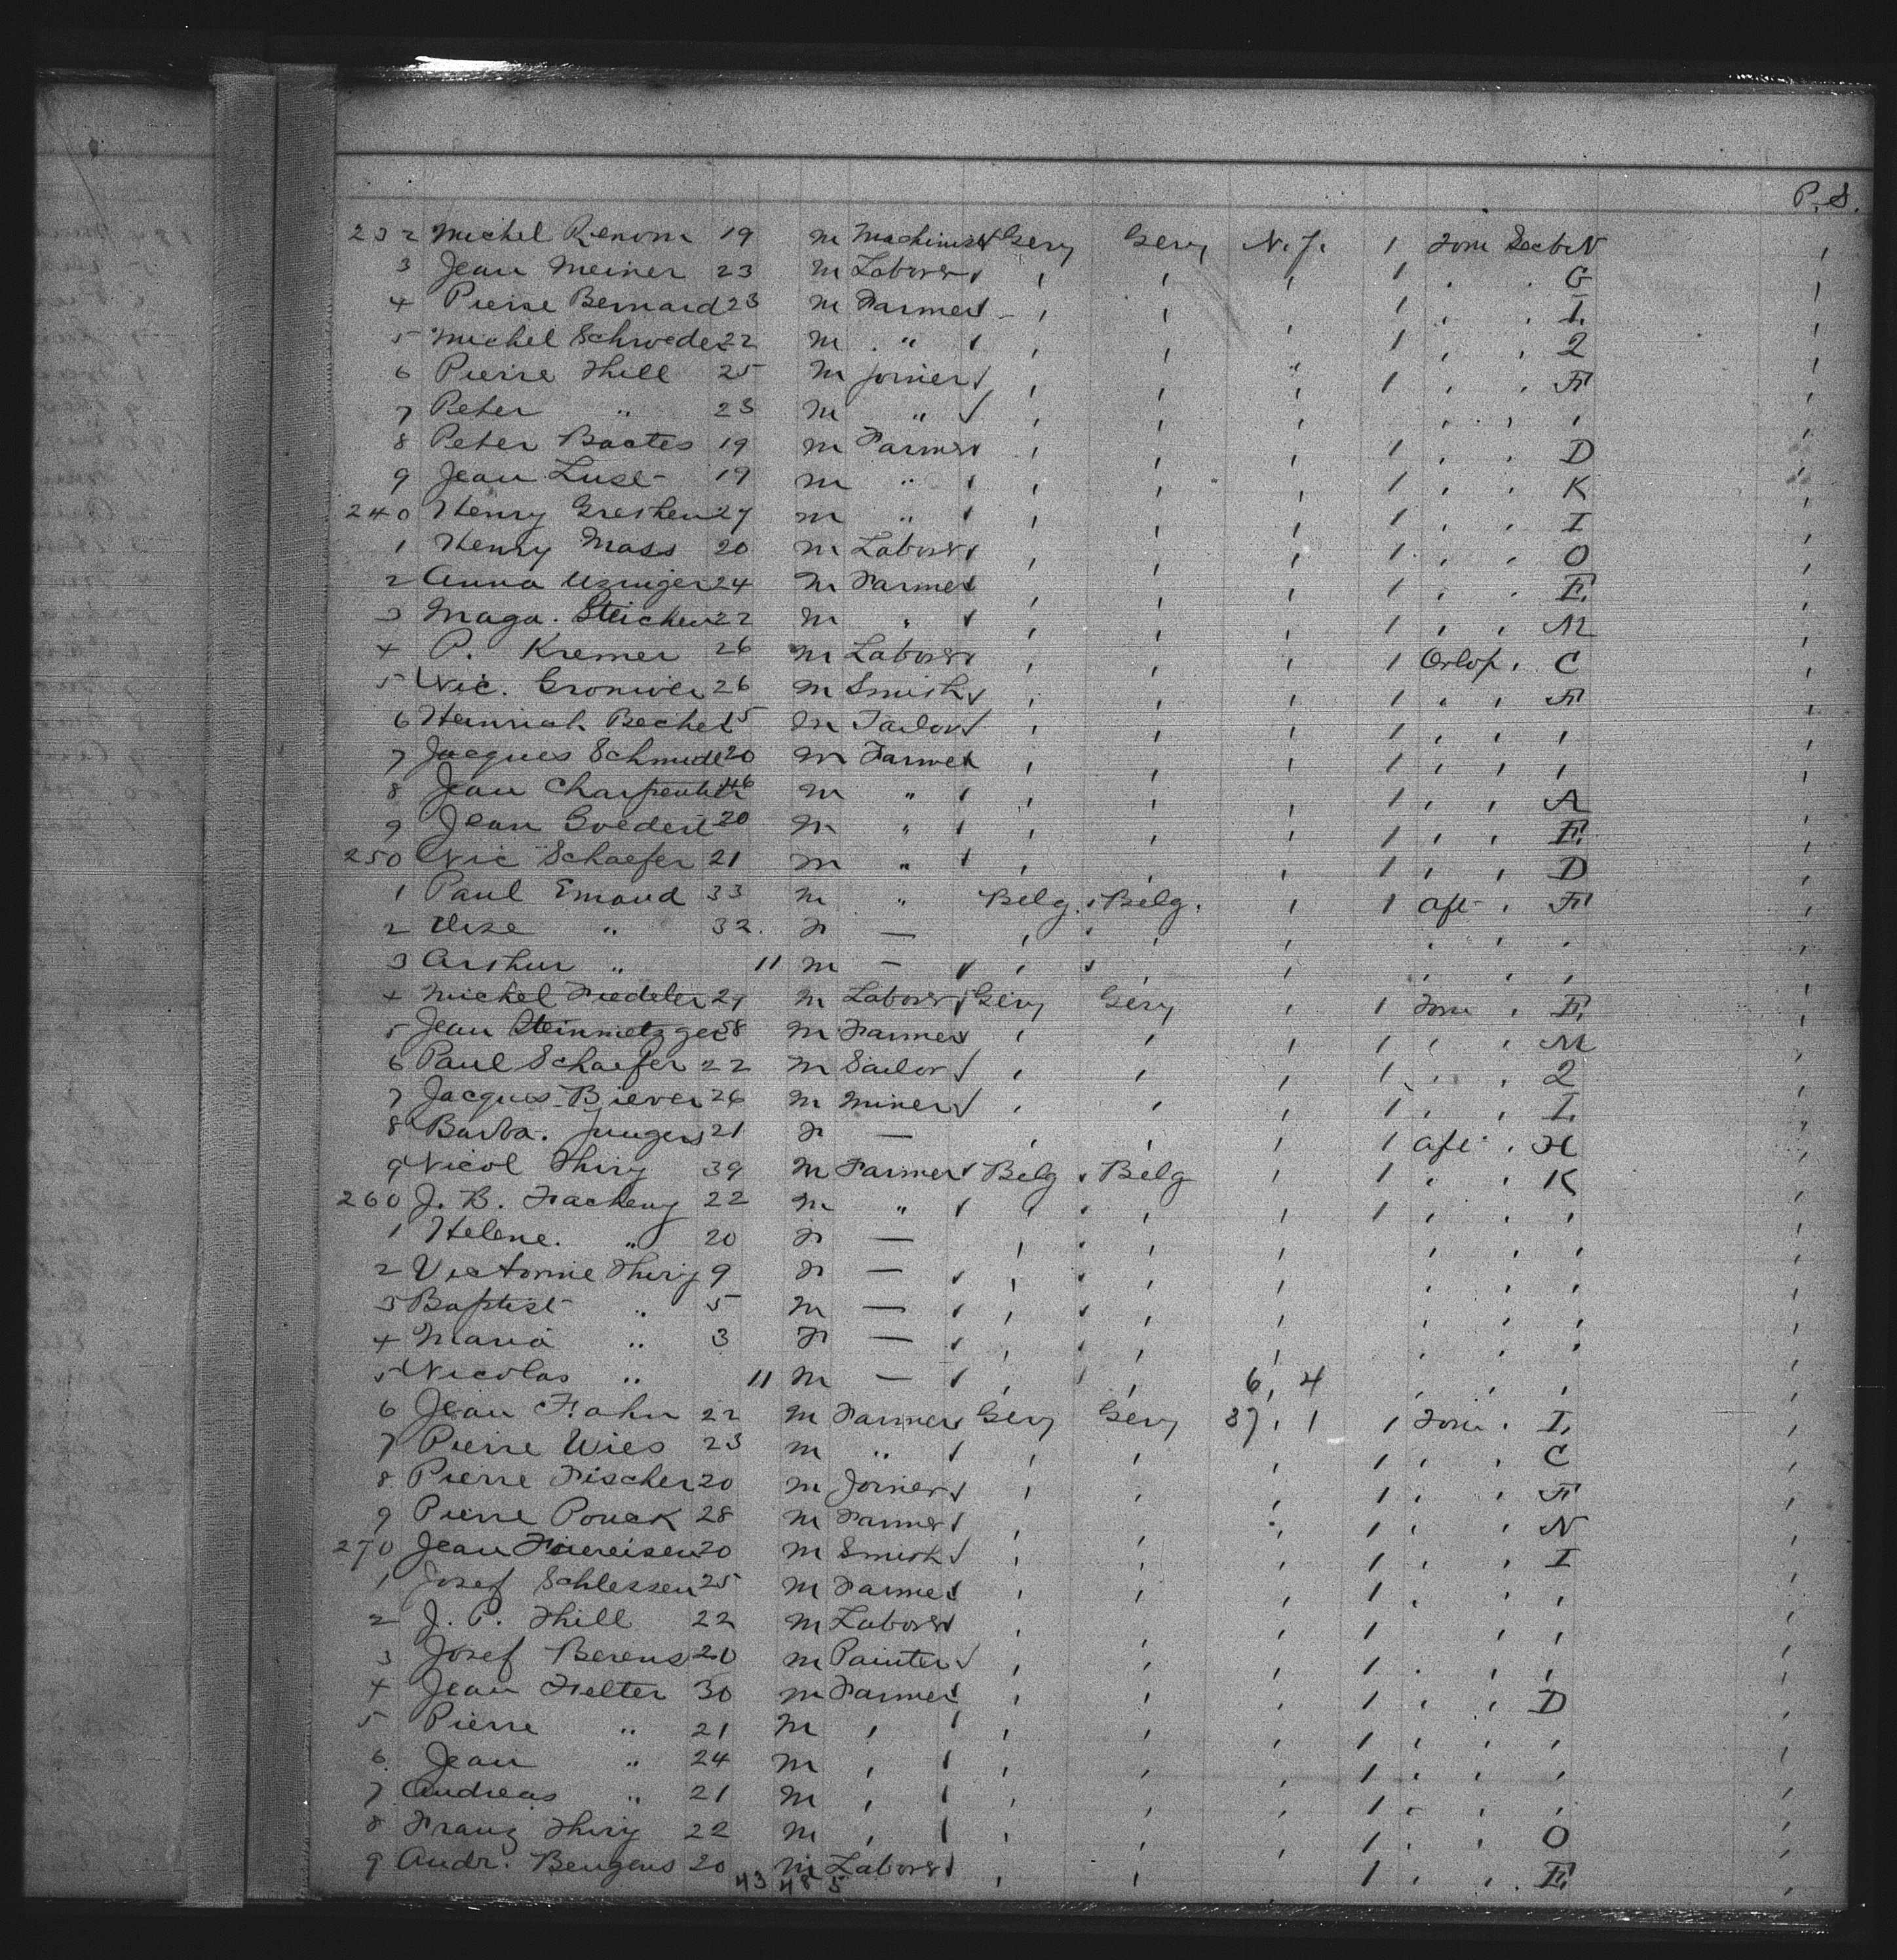 P. S.
232 Michel Renom 19 m Machinist Gery Gery N.J. 1 Forw Sect. N
3 Jean Meiner 23 m Laborer , , , 1 , , G
4 Pierre Bernard 23 m Farmer , , , 1 , , I
5 Michel Schroeder 22 m " , , , 1 , , 2
6 Pierre Thill 25 m Joiner , , " 1 , , F
7 Peter " 23 m " , , , , , ,
8 Peter Bactes 19 m Farmer , , , 1 , , D
9 Jean Luse 19 m " , , , 1 , , K
240 Henry Greshen 27 m " , , , 1 , , I
1 Henry Mass 20 m Laborer , , , 1 , , O
2 Anna Uzinger 24 m Farmer , , , 1 , , E
3 Maga. Steichen 22 m " , , , 1 , , M
4 P. Kremer 26 m Laborer , , , 1 Orlop , C
5 Nic. 26 m Smith , , , 1 , , F
6 Heinrich Bechel 5 m Tailor , , , 1 , , ,
7 Jacques Schmidt 20 m Farmer , , , 1 , , ,
8 Jean Charpentier 46 m " , , , 1 , , A
9 Jean Goedert 20 m " , , , 1 , , E
250 Nic Schaefer 21 m " , , , 1 , , D
1 Paul Emond 33 m " Belg. Belg. , 1 aft , F
2 " 32. F — , , , , , ,
3 Arthur " 11 m — , , , , , ,
4 Michel Fiedeler 27 m Laborer Gery Gery , 1 Forw , E
5 Jean Steinmetzger 58 m Farmer , , , 1 , , M
6 Paul Schaefer 22 m Sailor , , , 1 , , 2
7 Jacques Biever 26 m Miner , , , 1 , , I
8 Barba. Jungers 21 F — , , , 1 aft , H
9 Nicol Thiry 39 m Farmer Belg Belg , 1 , , K
260 J. B. Facheny 22 m " , , , 1 , , ,
1 Helene. " 20 F — , , , , , ,
2 Victorine Thiry 9 F — , , , , , ,
3 Baptist " 5 m — , , , , , ,
4 Maria " 3 F — , , , , , ,
5 Nicolas " 11 m — , , 6, 4 , , ,
6 Jean Hahn 22 m Farmer Gery Gery 37, 1 1 Forw , I
7 Pierre Wies 23 m " , , , 1 , , C
8 Pierre Fischer 20 m Joiner , , , 1 , , F
9 Pierre Pouck 28 m Farmer , , , 1 , , N
270 Jean 20 m Smith , , , 1 , , I
1 Josef Schlessen 25 m Farmer , , , 1 , , ,
2 J. P. Thill 22 m Laborer , , , 1 , ,
3 Josef Berens 20 m Painter , , , 1 , , ,
4 Jean Felter 30 m Farmer , , , 1 , , D
5 Pierre " 21 m , , , , 1 , , ,
6 Jean " 24 m , , , , 1 , , ,
7 Andreas " 21 m , , , , 1 , , ,
8 Franz Thiry 22 m , , , , 1 , , O
9 Andr. Bengens 20 m Laborer , , , 1 , , E
43 48 5